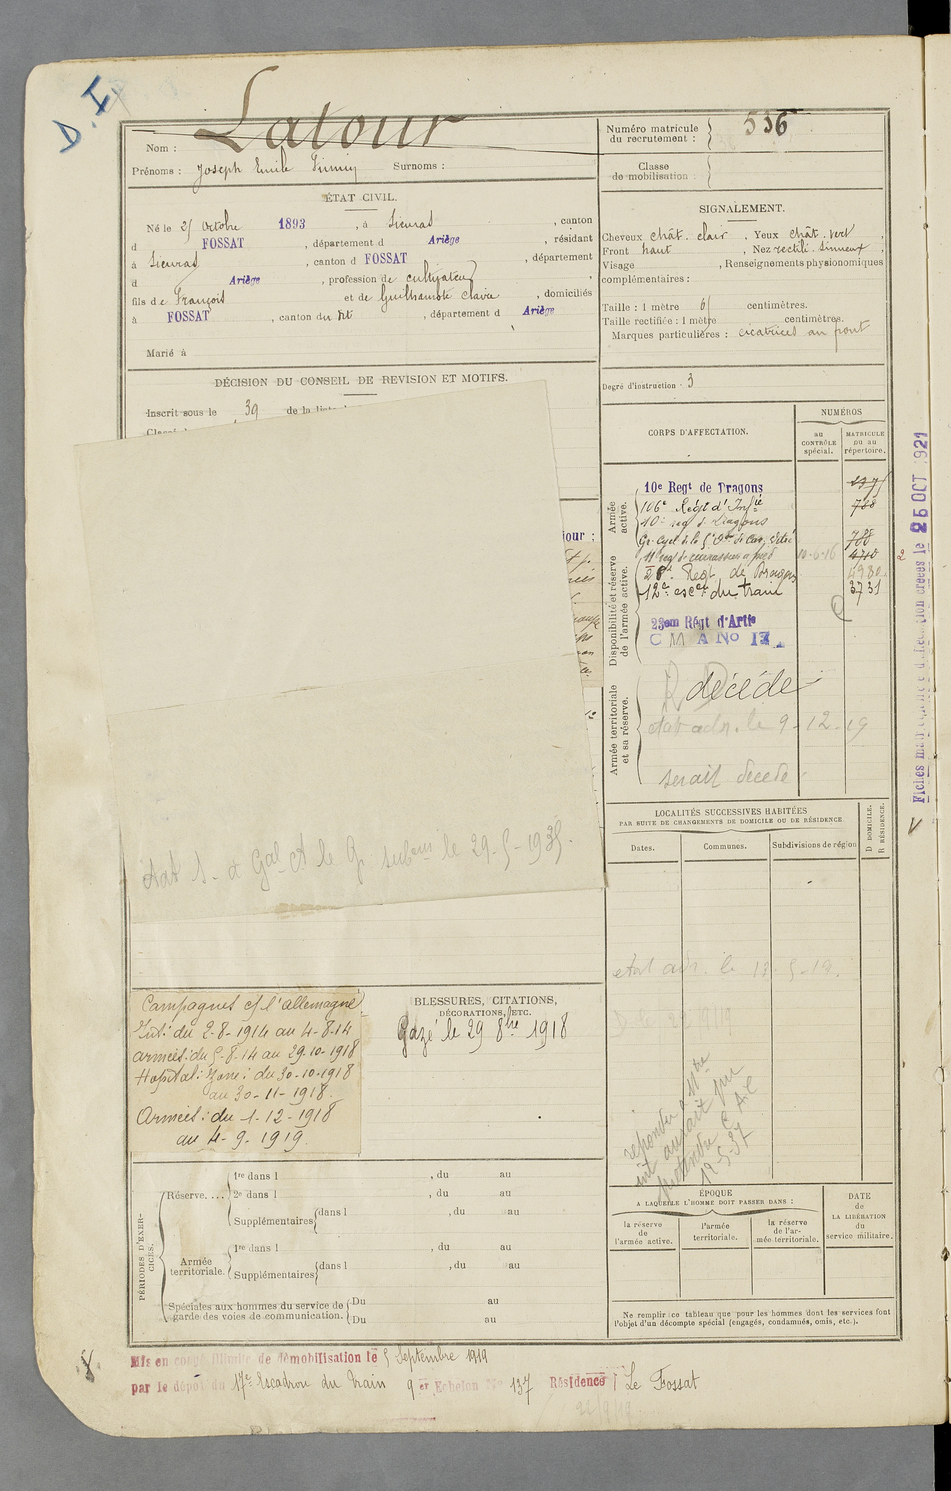 D. I
Latour
Nom :
Prénoms : Joseph Emile Firmin Surnoms :
Numéro matricule
du recrutement : 536
Classe
de mobilisation :
ÉTAT CIVIL.
Né le 25 Octobre 1893, à Sieuras, canton
d FOSSAT, département d Ariège, résidant
à Sieuras, canton d FOSSAT, département
d Ariège, profession de cultivateur,
fils de François et de Guilhamote Clavie, domiciliés
à FOSSAT, canton du dit, département d Ariège
Marié à
SIGNALEMENT.
Cheveux chât. clair. Yeux chât. vert,
Front haut, Nez rectili. sinueux,
Visage, Renseignements physionomiques
complémentaires :
Taille : 1 mètre 65 centimètres.
Taille rectifiée : 1 mètre centimètres.
Marques particulières : cicatrices au front
Degré d'instruction : 3
DÉCISION DU CONSEIL DE REVISION ET MOTIFS.
Inscrit sous le 39 de la liste
jour :
CORPS D'AFFECTATION.
NUMÉROS
au
CONTRÔLE
spécial.
MATRICULE
ou au
répertoire.
Armée
active.
10e Regt de Dragons
106e Régt d'Infie 788
10e reg de dragons
Gr. Cycl. de la 5e Don de Cav. 788
11e reg de cuirassiers à pied 10-6-16 4710
28e Regt de Dragons 4930
12e escon du train 3731
Disponibilité et réserve
de l'armée active.
23em Régt d'Artie
C M A No 17
Armée territoriale
et sa réserve.
décédé
état adr. le 9-12-19
serait décédé
Fiches matricules de
créées le 26 OCT 1921
état s. à Gal et le Gr subon le 29-5-1935.
LOCALITÉS SUCCESSIVES HABITÉES
PAR SUITE DE CHANGEMENTS DE DOMICILE OU DE RÉSIDENCE
Dates.
Communes.
Subdivisions de région
D DOMICILE.
R RÉSIDENCE.
état adr. le 13-5-19.
répondu à Mtre
int aurait pu
prétendre C A C
19-5-37
Campagnes ct l'allemagne
Int: du 2-8-1914 au 4-8-14
armées: du 5-8-14 au 29-10-1918
Hopital: Zone: du 30-10-1918
au 30-11-1918.
Armées: du 1-12-1918
au 4-9-1919
BLESSURES, CITATIONS,
DÉCORATIONS, ETC.
Gazé le 29 8bre 1918
PÉRIODES D'EXERCICES.
Réserve....
1re dans l, du au
2e dans l, du au
Supplémentaires dans l, du au
Armée
territoriale.
1re dans l, du au
Supplémentaires dans l, du au
Spéciales aux hommes du service de
garde des voies de communication.
Du au
Du au
ÉPOQUE
A LAQUELLE L'HOMME DOIT PASSER DANS :
la réserve
de
l'armée active.
l'armée
territoriale.
la réserve
de l'ar-
mée territoriale.
DATE
de
LA LIBÉRATION
du
service militaire.
Ne remplir ce tableau que pour les hommes dont les services font
l'objet d'un décompte spécial (engagés, condamnés, omis, etc.).
Mis en congé illimité de démobilisation le 5 Septembre 1919
par le dépôt du 17e Escadron du train 9er Echelon No 137 Résidence Le Fossat